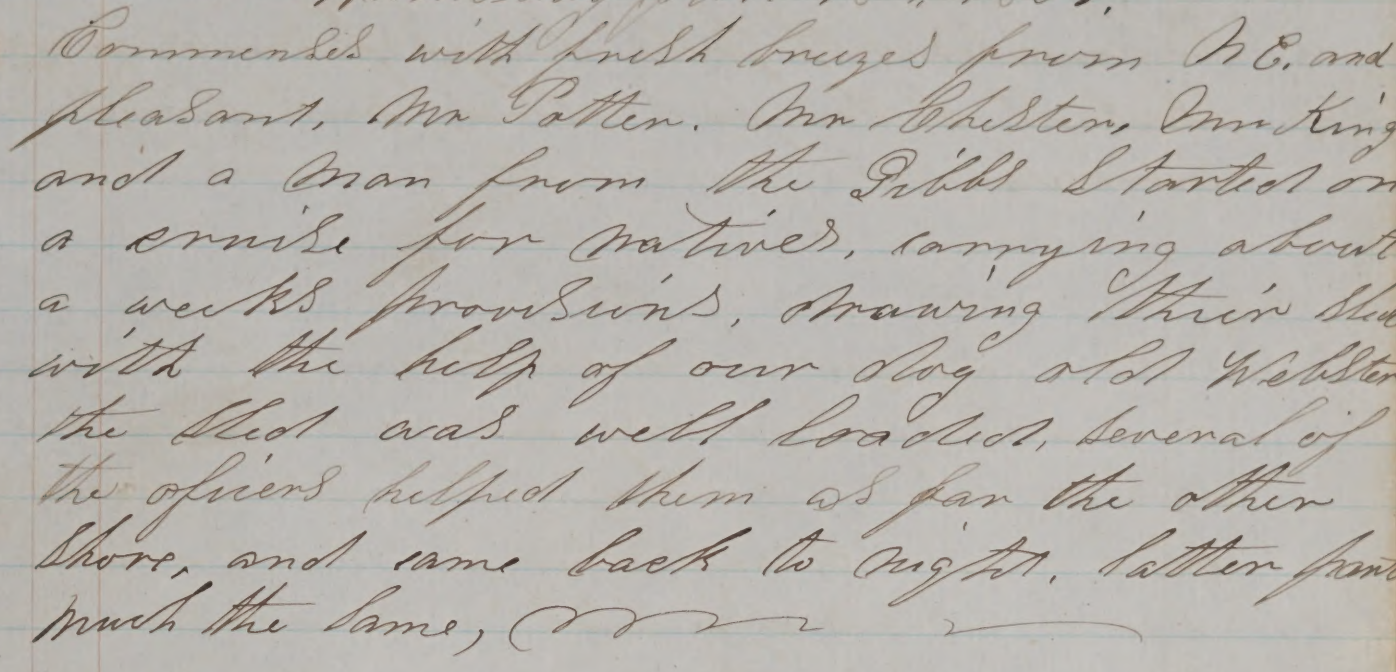 Commenses with fresh breezes from N E. and
pleasant. Mr Potter. Mr Chester, Mr King
and a man from the Gibbs started on
a cruise for natives, carrying about
a weeks provisions, drawing their sled
with the help of our dog old Webster
the sled was well loaded, several of
the oficers helped them as far the other
shore, and came back to night. latter part
much the same,